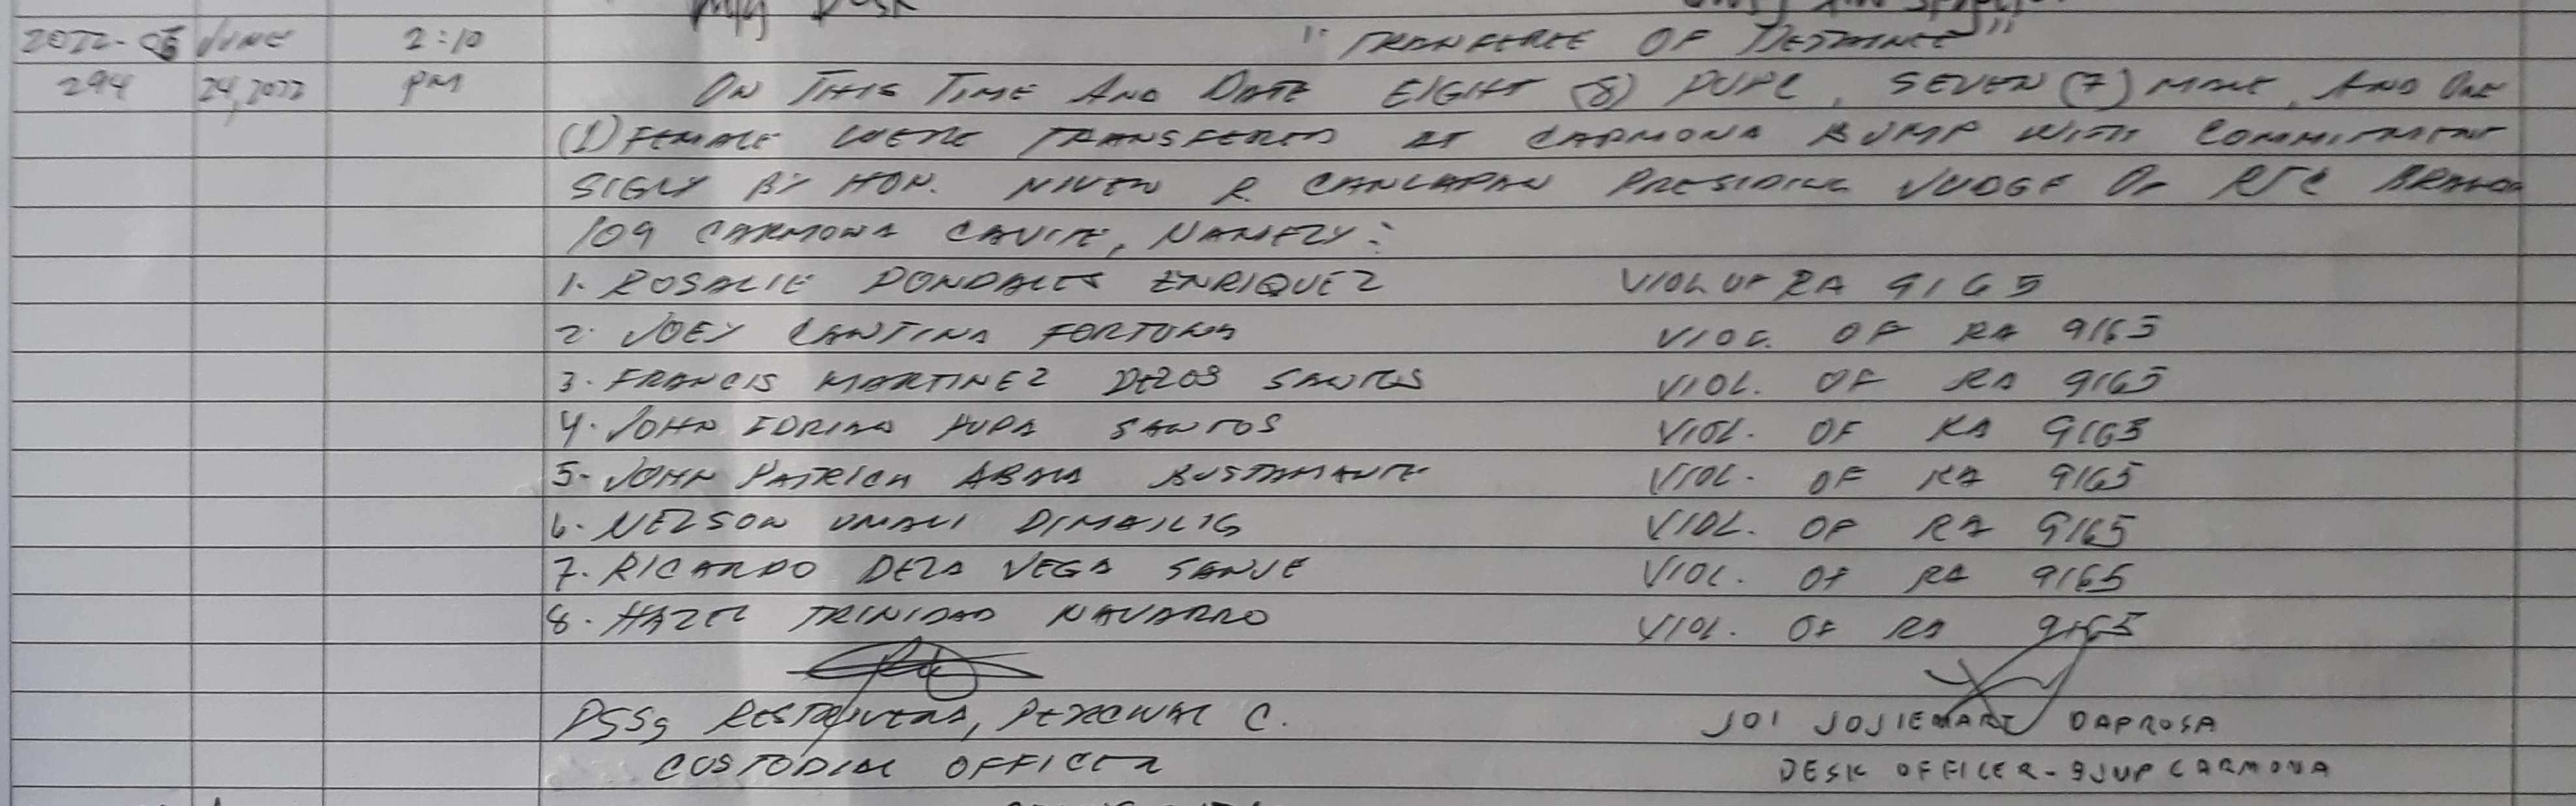 Desk
2022-06 JUNE 2:10 "TRANFEREE OF DETAINEE"
294 24, 2022 PM ON THIS TIME AND DATE EIGHT (8) PUPC, SEVEN (7) MALE, AND ONE
(1) FEMALE WERE TRANSFERED AT CARMONA BJMP WITH COMMITMENT
SIGLY BY HON. NIVEN R. CANLAPAN PRESIDING JUDGE OF RTC BRANCH
109 CARMONA CAVITE, NAMELY:
1. ROSALIE DONDALES ENRIQUEZ VIOL OF RA 9165
2. JOEY CANTINA FORTUNA VIOL. OF RA 9165
3. FRANCIS MARTINEZ DELOS SANTOS VIOL. OF RA 9165
4. JOHN SANTOS VIOL. OF RA 9165
5. JOHN PATRICK ABALA BUSTAMANTE VIOL. OF RA 9165
6. NELSON UMALI DIMAILIG VIOL. OF RA 9165
7. RICARDO DELA VEGA SANJE VIOL. OF RA 9165
8. HAZEL TRINIDAD NAVARRO VIOL. OF RA 9165
PSSg RESTRIVERA, PERCIVAL C. JO1 JOJIEMART DAPROSA
CUSTODIAL OFFICER DESK OFFICER - BJMP CARMONA